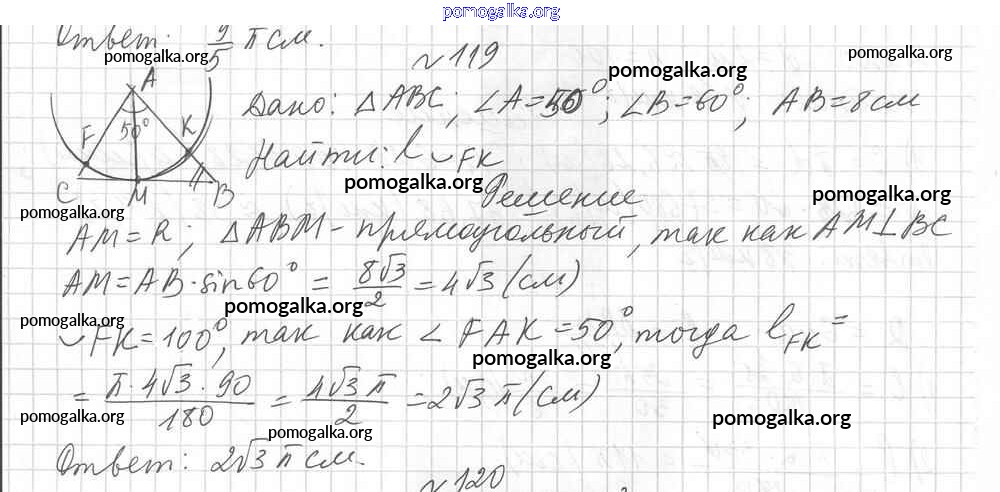 pomogalka.org
Ответ: 9/5 π см.
pomogalka.org
№119
pomogalka.org
pomogalka.org
A
50°
F K
C M B
Дано: △ABC; ∠A=50°; ∠B=60°; AB=8см
Найти: l ◡FK
pomogalka.org
Решение
pomogalka.org
pomogalka.org
AM=R; △ABM - прямоугольный, так как AM⊥BC
AM=AB·sin60° = 8√3/2 = 4√3 (см)
pomogalka.org
pomogalka.org
◡FK=100°, так как ∠FAK=50°, тогда l FK =
pomogalka.org
= π·4√3·90/180 = 4√3π/2 = 2√3π (см)
pomogalka.org
pomogalka.org
pomogalka.org
Ответ: 2√3 π см.
№120